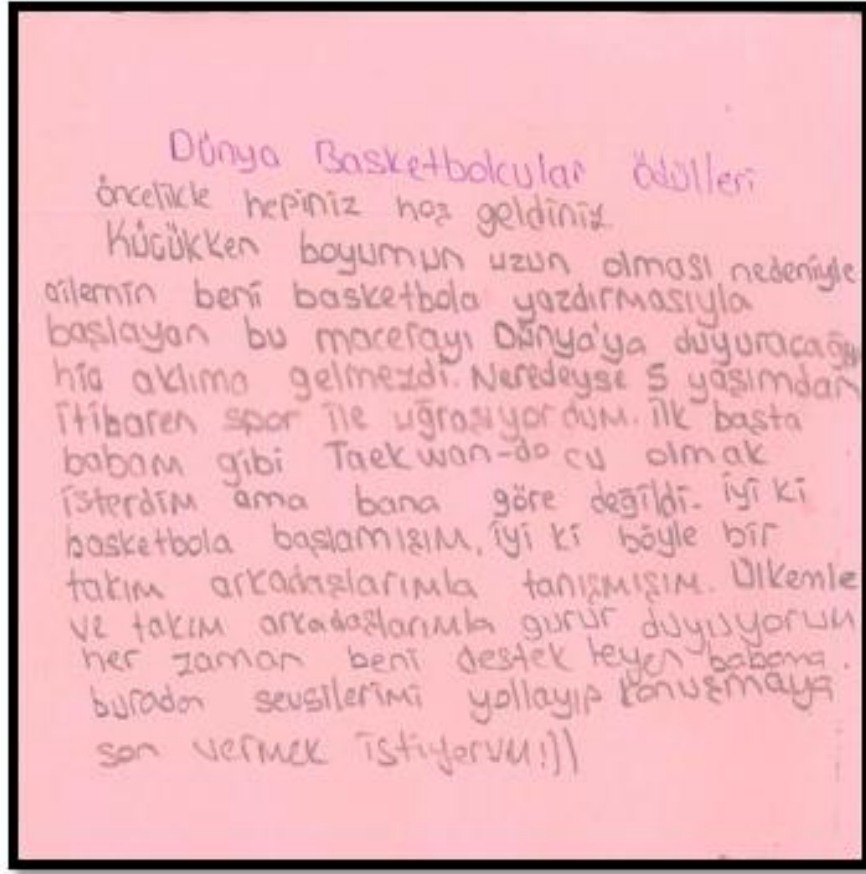 Dünya Basketbolcular Ödülleri
öncelikle hepiniz hoş geldiniz
Küçükken boyumun uzun olması nedeniyle
ailemin beni basketbola yazdırmasıyla
başlayan bu macerayı Dünya'ya duyuracağım
hiç aklıma gelmezdi. Neredeyse 5 yaşımdan
itibaren spor ile uğraşıyordum. ilk başta
babam gibi Taekwan-do cu olmak
isterdim ama bana göre değildi. iyi ki
basketbola başlamışım, iyi ki böyle bir
takım arkadaşlarımla tanışmışım. Ülkemle
ve takım arkadaşlarımla gurur duyuyorum
her zaman beni destek leyen babama
buradan sevgilerimi yollayıp konuşmaya
son vermek istiyorum!))